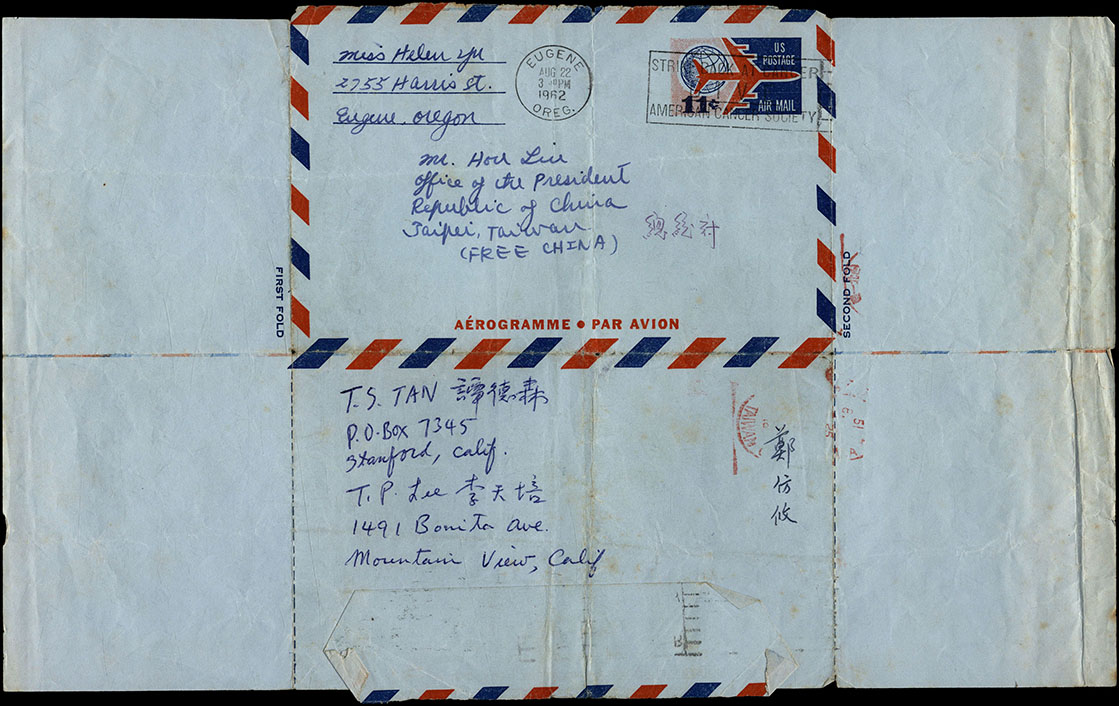 Miss Helen Yu
2755 Harris St.
Eugene, Oregon
EUGENE
AUG 22
PM
1962
OREG.
US
POSTAGE
11¢
AIR MAIL
STRIKE BACK AT CANCER
AMERICAN CANCER SOCIETY
Mr. Hou Liu
Office of the President
Republic of China
Taipei, Taiwan
(FREE CHINA)
FIRST FOLD
SECOND FOLD
AÉROGRAMME • PAR AVION
T.S. TAN 譚德森
P.O. Box 7345
Stanford, Calif.
T.P. Lee 李天培
1491 Bonita Ave.
Mountain View, Calif
TAIWAN
鄭
仿
攸